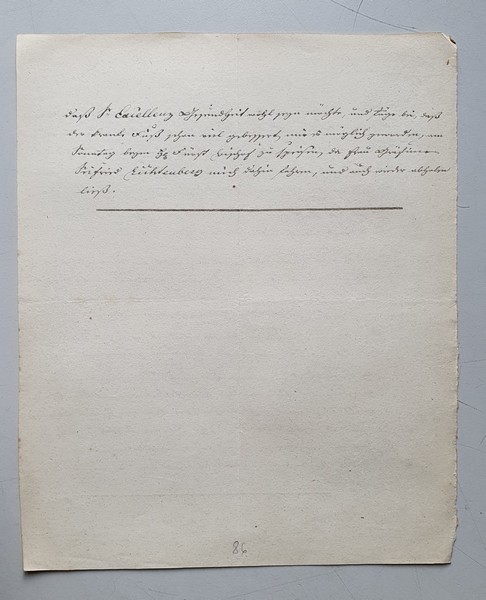 daß Sr Excellenz Gesundheit wohl seyn möchte, und füge bei, daß
der kranke Fuß schon viel gebessert, mir es möglich geworden, am
Sonntag beym Fürst Bischof zu speisen, da Frau
Lichtenberg mich dahin fahren, und auch wieder abholen
ließ.
86